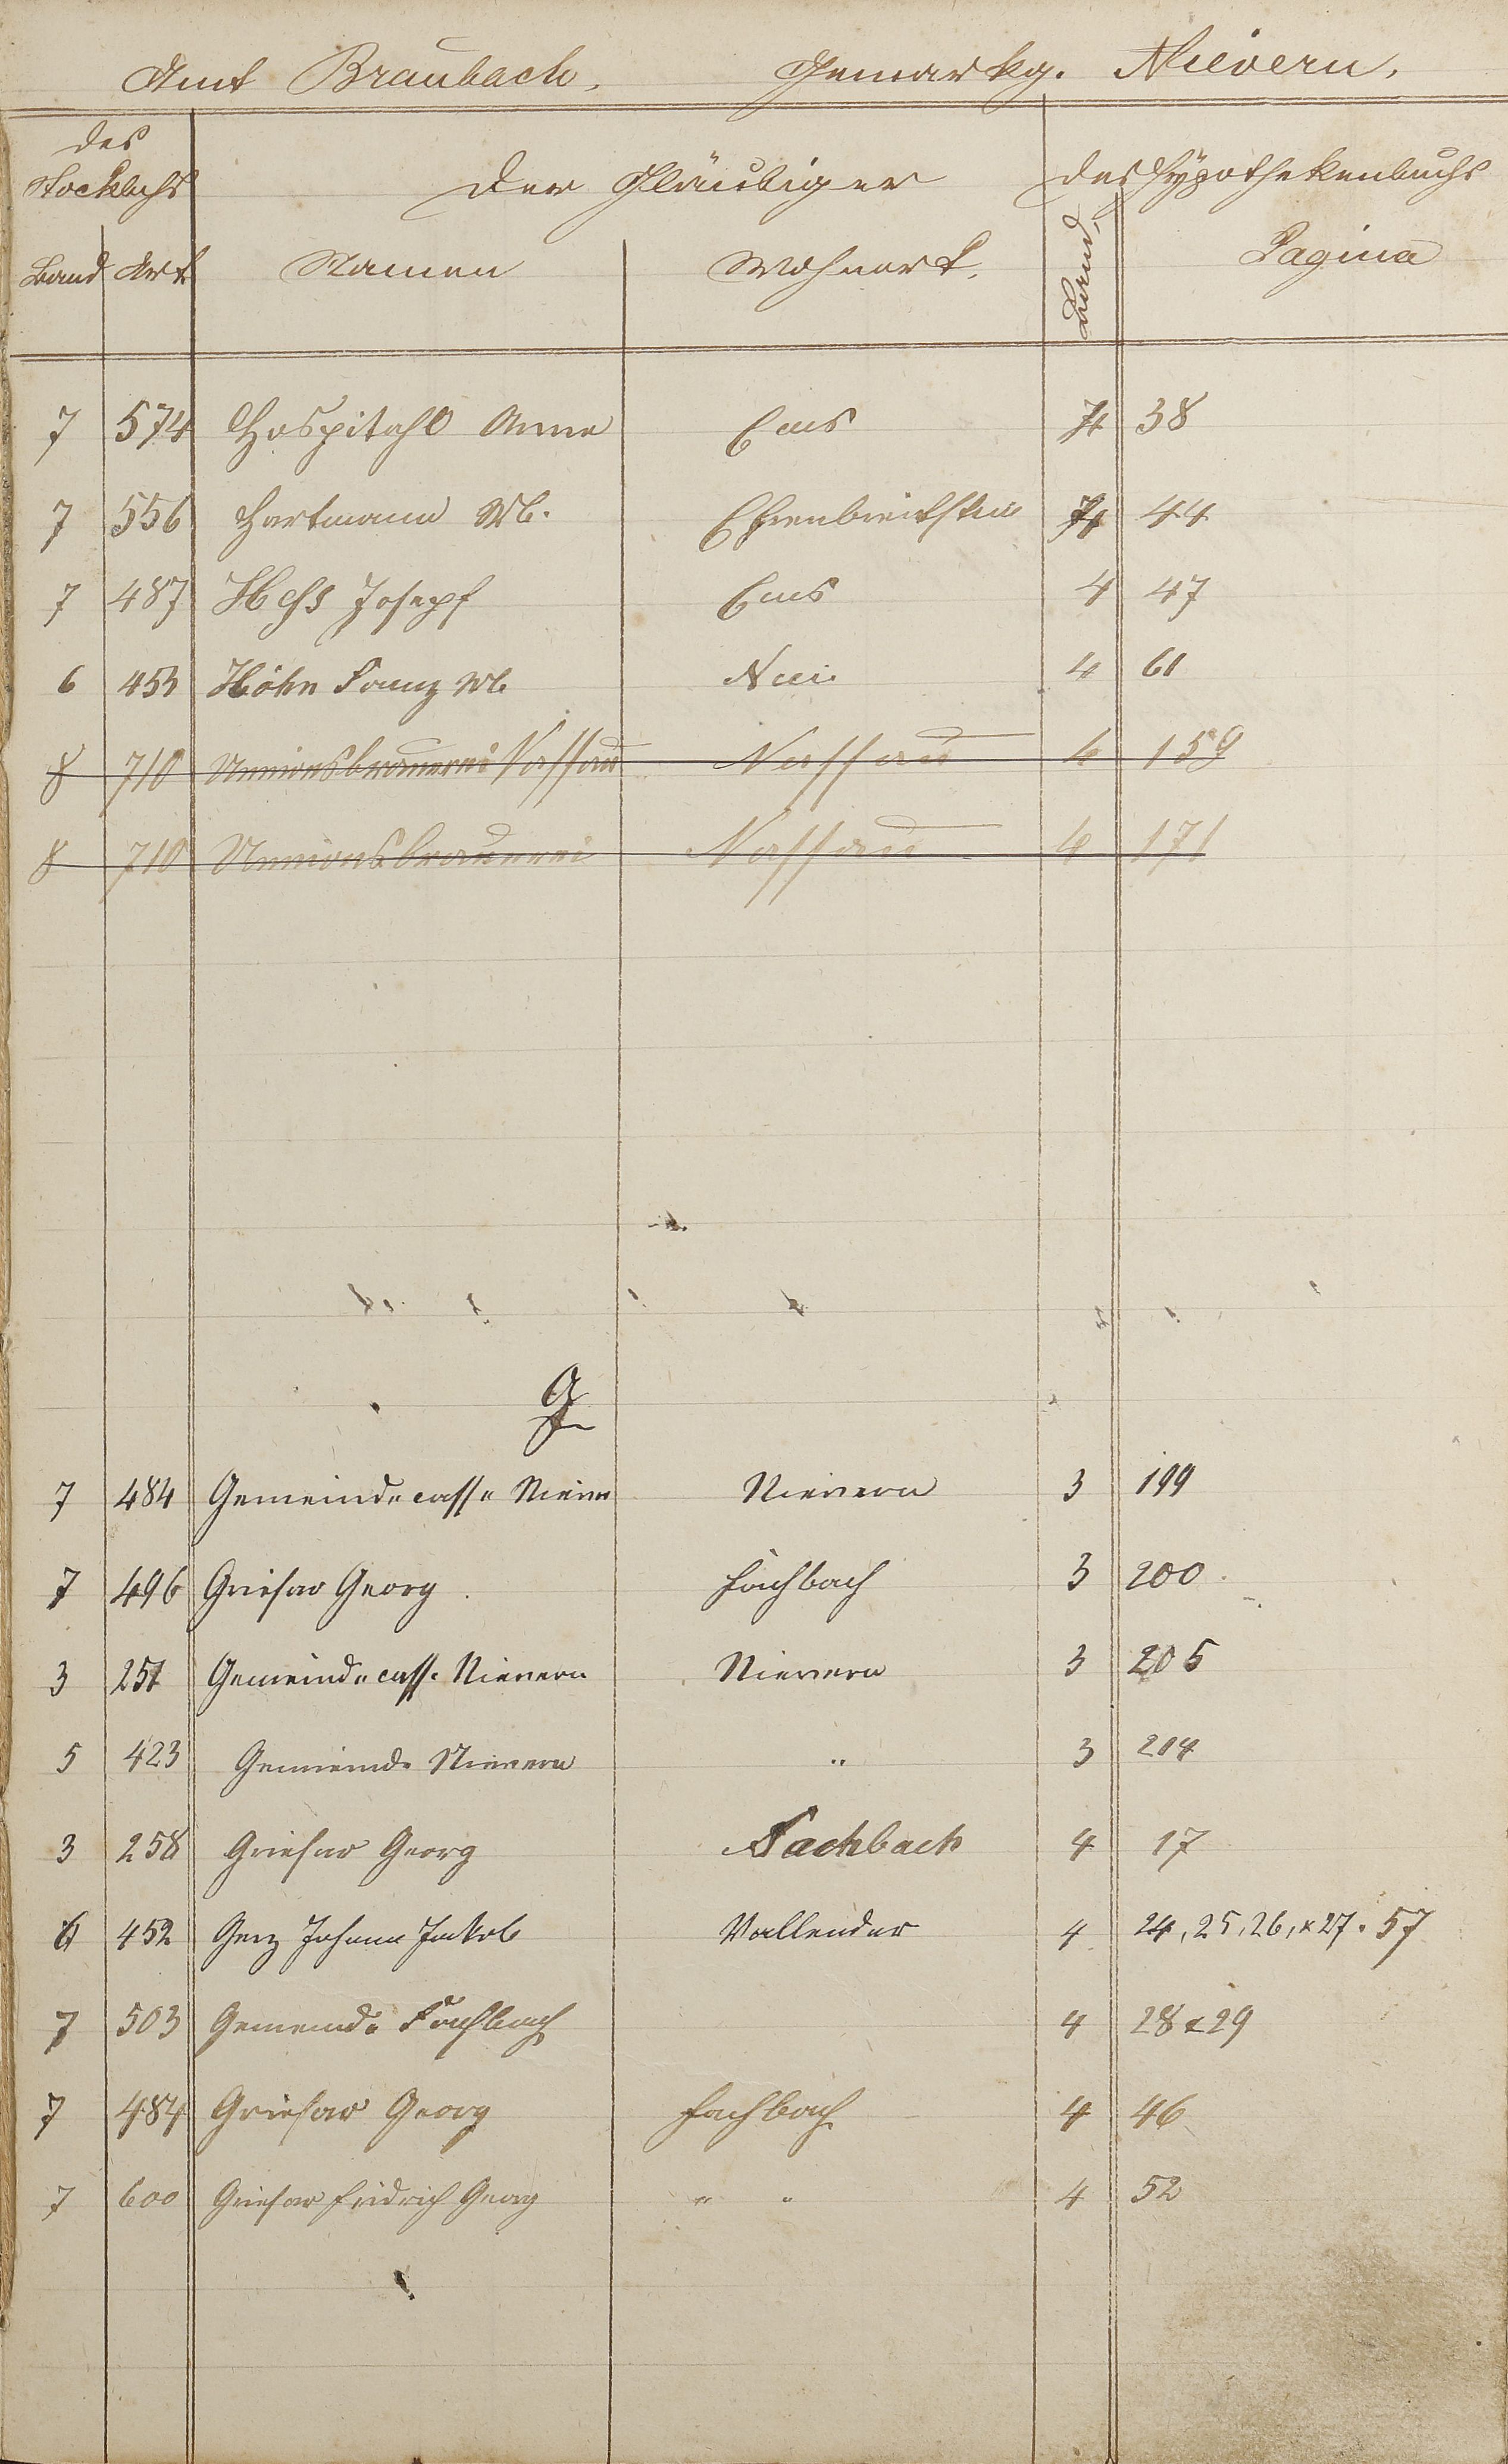 Amt Braubach. Gemarkg. Nievern.
des Stockbuchs der Gläubiger des Hypothekenbuchs
Band Art Namen Wohnort. Band. Pagina
7 574 Hospitahl Anna Ems 4 38
7 556 Hartmann Wb. Ehrenbreitstein 4 44
7 487 Hess Josepf Ems 4 47
6 453 Höhn Franz Wb 4 61
8 710 Unionsbrauerei Nassau Nassau 4 159
8 710 Unionsbrauerei Nassau 4 171
G
7 484 Gemeindecasse Nievern Nievern 3 199
7 496 Griesar Georg Fachbach 3 200
3 251 Gemeindecasse Nievern Nievern 3 205
5 423 Gemeinde Nievern " 3 204
3 258 Griesar Georg Fachbach 4 17
6 452 Gerz Johann Jakob Vallendar 4 24, 25, 26, & 27. 57
7 503 Gemeinde Fachbach 4 28 & 29
7 484 Griesar Georg Fachbach 4 46
7 600 Griesar Fridrich Georg " " 4 52